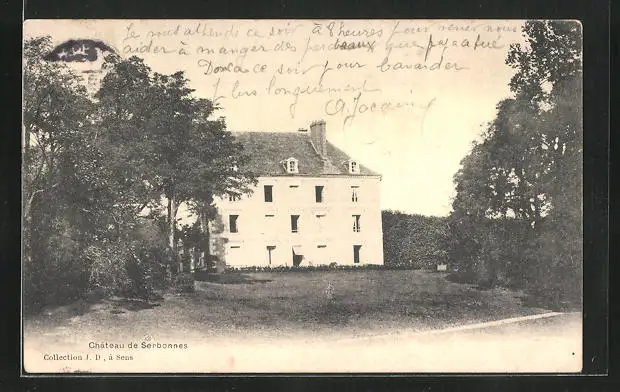 Je vous attends ce soir à 8 heures pour venir nous
aider à manger des perdreaux que papa a tué
Donc a ce soir pour bavarder
plus longuement
Château de Serbonnes
Collection J. D., à Sens